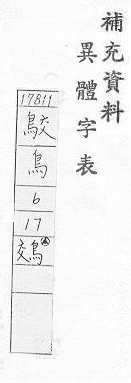 補充資料
異體字表
17811
鳥
6
17
鵁